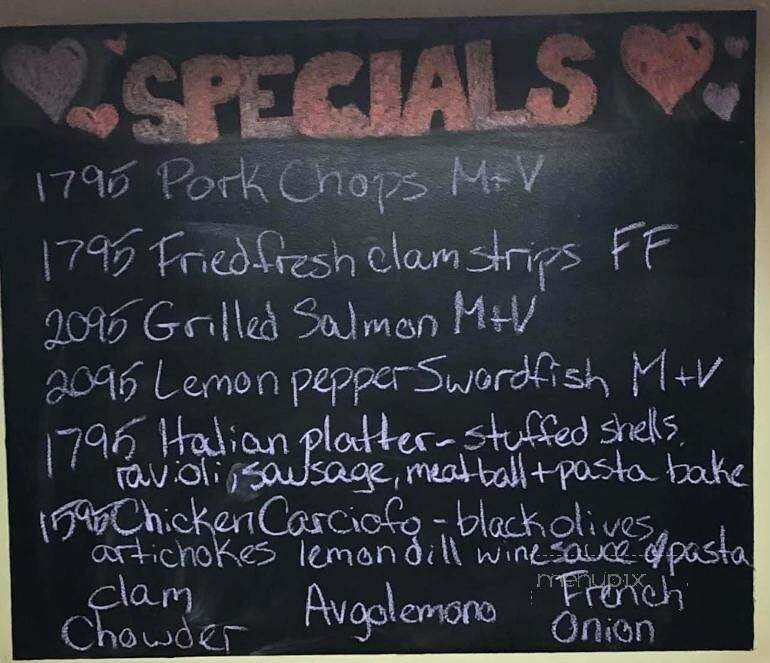 SPECIALS
1795 Pork Chops M+V
1795 Fried fresh clam strips FF
2095 Grilled Salmon M+V
2095 Lemon pepper Swordfish M+V
1795 Italian platter - stuffed shells,
ravioli, sausage, meatball + pasta bake
1595 Chicken Carciofo - black olives,
artichokes lemon dill wine sauce o/pasta
menupix
clam Avgolemono French
Chowder Onion